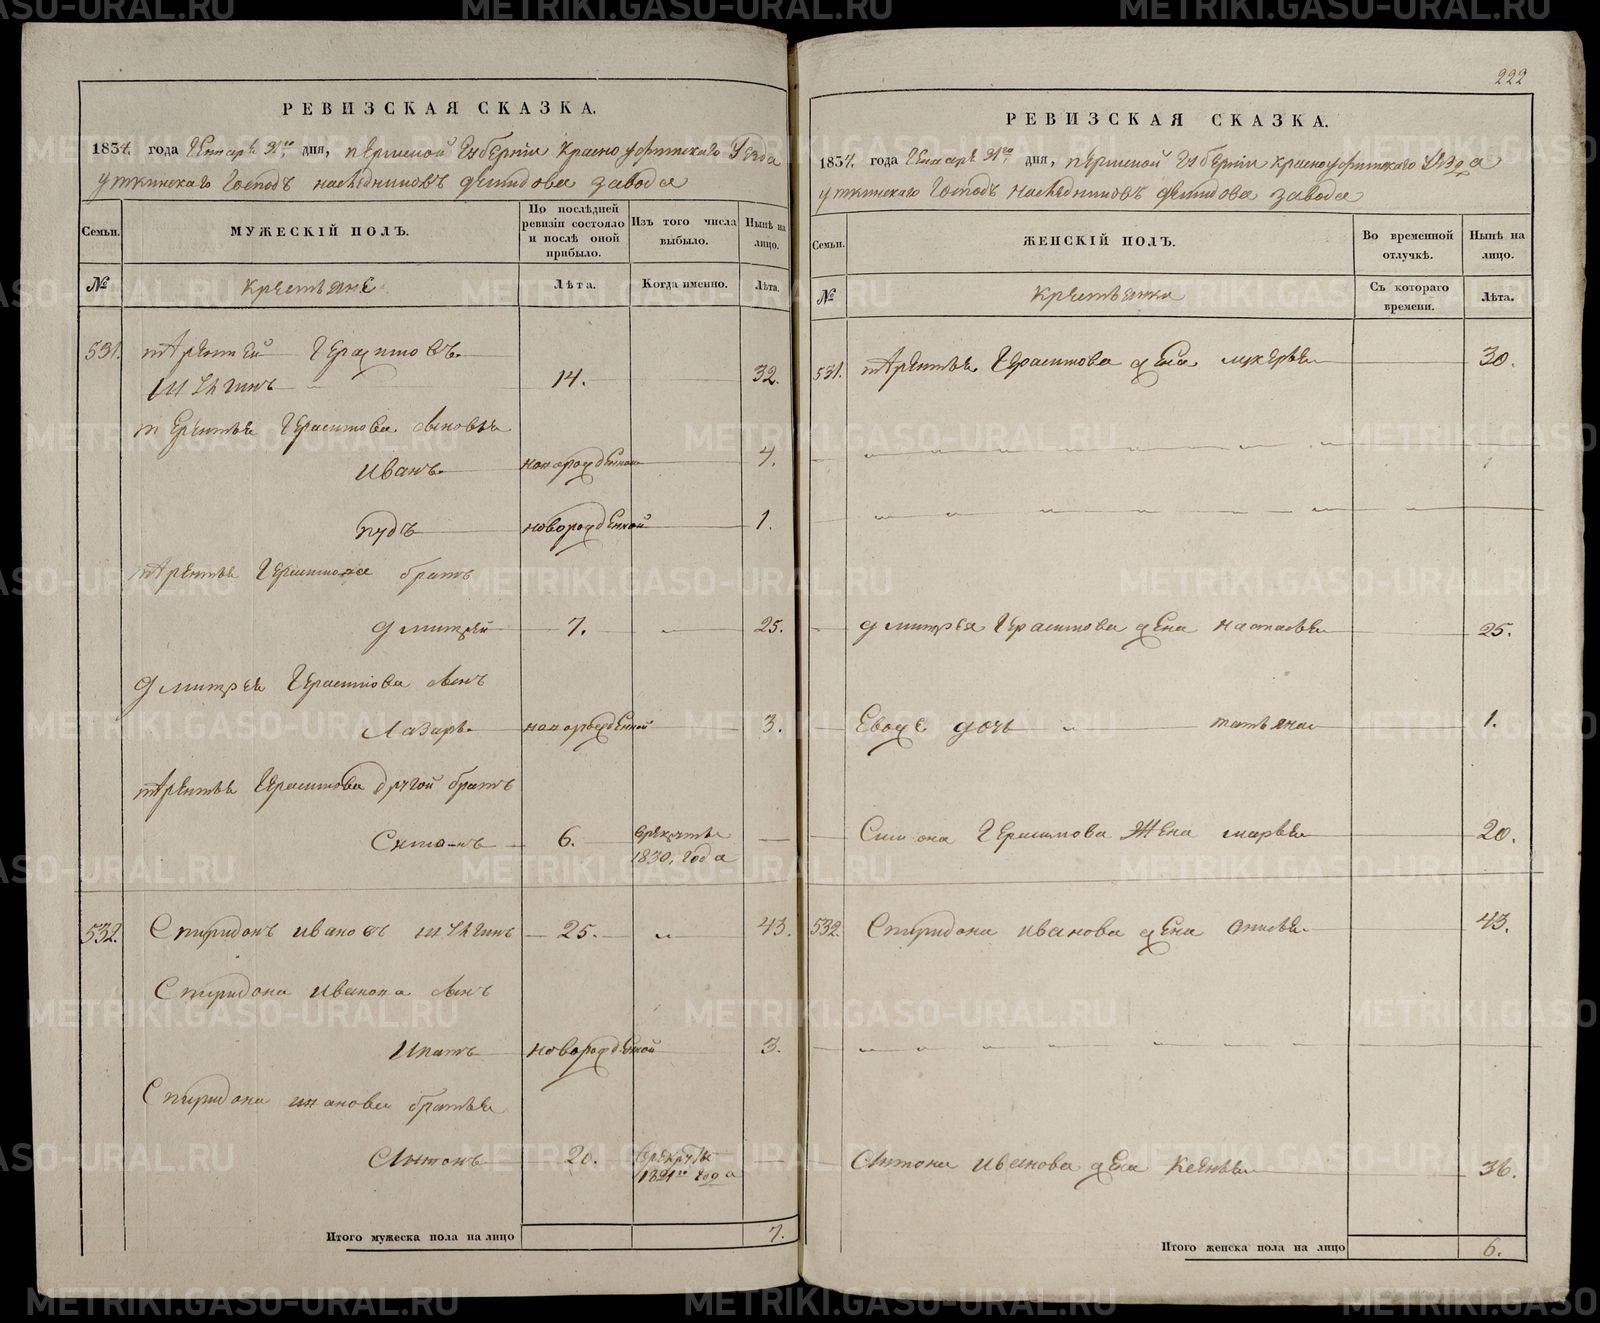 222
РЕВИЗСКАЯ СКАЗКА.
1834. года Генваря 31го дня, пермской Губернiи Красноуфимскаго Уезда
уткинскаго Господъ наследниковъ демидова завода
Семьи.
МУЖЕСКIЙ ПОЛЪ.
По послѣдней ревизiи состояло и послѣ оной прибыло.
Изъ того числа выбыло.
Нынѣ на лицо.
№
крестьяне
Лѣта.
Когда именно.
Лѣта.
531. терентей Герасимовъ
14. 32.
терентья Герасимова сыновья
Иванъ новорожденной 4.
пудъ новорожденной 1.
терентья Герасимова братъ
дмитрей 7. 25.
дмитрея Герасимова сынъ
Лазарь новорожденной 3.
терентья Герасимова другой братъ
Симонъ 6. врекруты
1830. года
532. Спиридонъ ивановъ 25. 43.
Спиридона иванова сынъ
Ипатъ новорожденной 3.
Спиридона иванова братья
Антонъ 20. врекруты
года
Итого мужеска пола на лицо 7.
РЕВИЗСКАЯ СКАЗКА.
1834. года Генваря 31го дня, пермской Губернiи красноуфимскаго Уезда
уткинскаго Господъ наследниковъ демидова завода
Семьи.
ЖЕНСКIЙ ПОЛЪ.
Во временной отлучкѣ.
Нынѣ на лицо.
№
крестьянки
Съ котораго времени.
Лѣта.
531. терентья Герасимова жена лукерья 30.
дмитрея Герасимова жена настасья 25.
Евоже дочь татьяна 1.
Симона Герасимова Жена марья 20.
532. Спиридона иванова жена анисья 43.
Антона иванова жена ксенья 36.
Итого женска пола на лицо 6.
METRIKI.GASO-URAL.RU